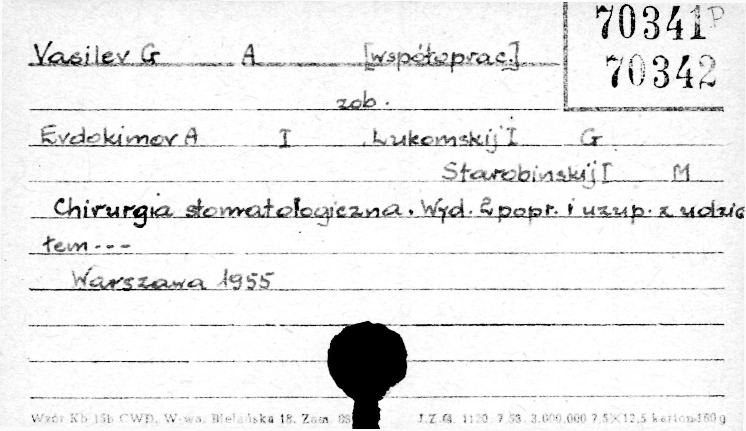 70341 P
70342
Vasilev G A [współoprac.]
zob.
Evdokimov A I, Lukomskij I G
Starobinskij I M
Chirurgia stomatologiczna. Wyd. 2 popr. i uzup. z udzia
łem ---
Warszawa 1955
Wzór Kb 15b CWD, W-wa, Bielańska 18. Zam. J.Z.G. 1120. 7.53. 3.000.000 7,5×12,5 karton 160 g